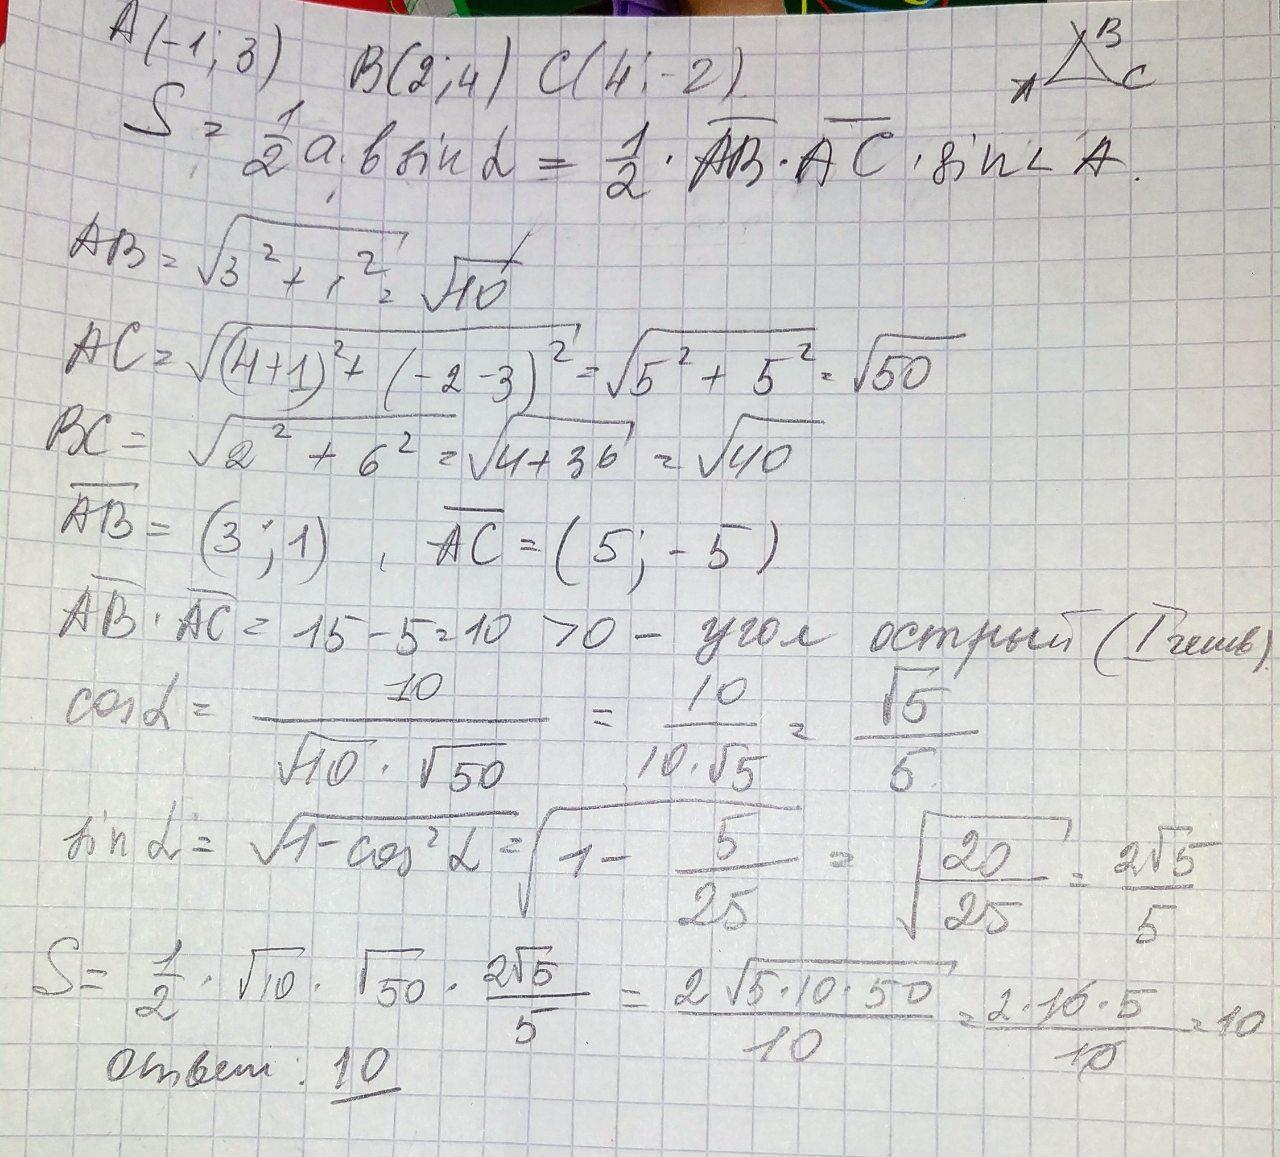 A(-1; 3) B(2; 4) C(4; -2)
B
A C
S = 1/2 a · b sin α = 1/2 · AB · AC · sin ∠A.
AB = √(3² + 1²) = √10
AC = √((4+1)² + (-2-3)²) = √(5² + 5²) = √50
BC = √(2² + 6²) = √(4+36) = √40
AB = (3; 1), AC = (5; -5)
AB · AC = 15 - 5 = 10 > 0 - угол острый (I четв).
cos α = 10/(√10 · √50) = 10/(10·√5) = √5/5
sin α = √(1-cos²α) = √(1 - 5/25) = √(20/25) = 2√5/5
S = 1/2 · √10 · √50 · 2√5/5 = 2√(5·10·50)/10 = 2·10·5/10 = 10
ответ: 10